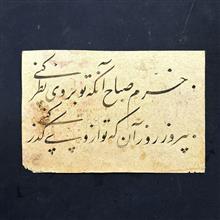 خرم صباح آنکه تو بروی نظر کنی
پیروز روز آن که تو از وی گذر کنی